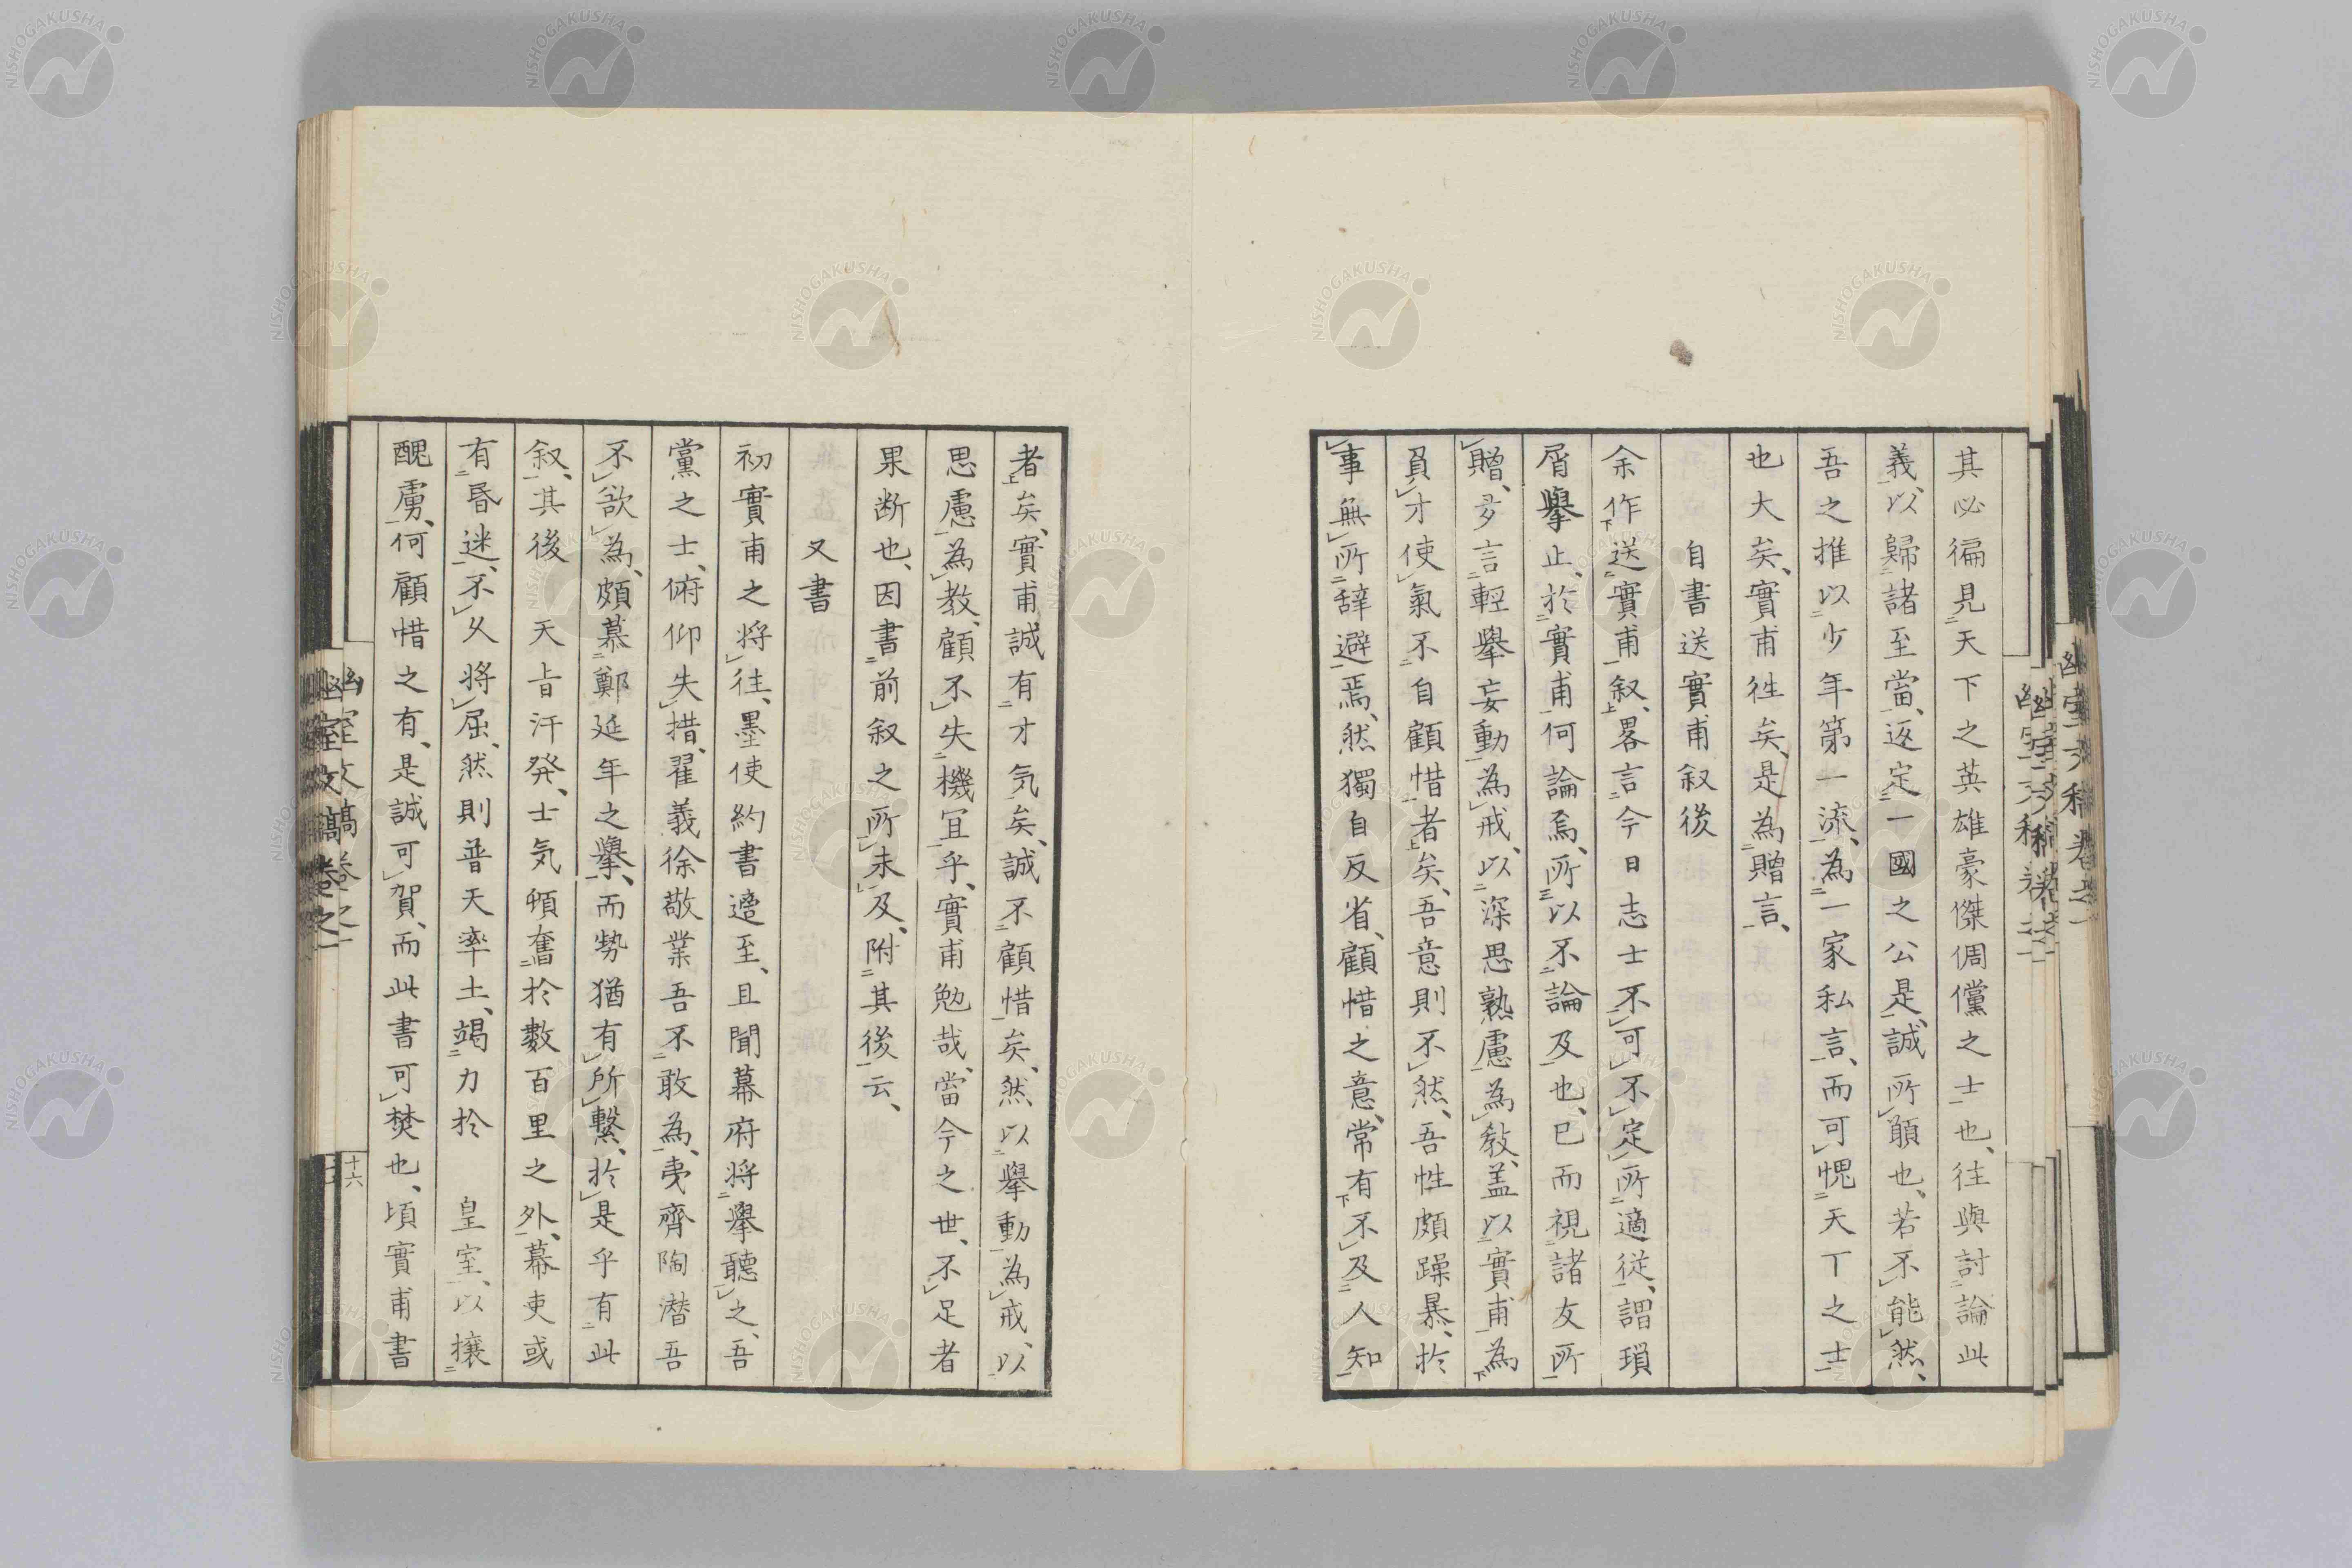 其必徧見天下之英雄豪傑倜儻之士也、往與討論此
義、以歸諸至當、返定一國之公是、誠所願也、若不能然、
吾之推以少年第一流、為一家私言、而可愧天下之士
也大矣、實甫徃矣、是為贈言、
自書送實甫叙後
余作送實甫叙、畧言今日志士不可不定所適從、謂瑣
屑擧止、於實甫何論焉、所以不論及也、已而視諸友所
贈、多言輕擧妄動為戒、以深思熟慮為教、盖以實甫為
負才使氣不自顧惜者矣、吾意則不然、吾性頗躁暴、於
事無所辞避焉、然獨自反省、顧惜之意、常有不及人知
者矣、實甫誠有才気矣、誠不顧惜矣、然以擧動為戒、以
思慮為教、顧不失機宜乎、實甫勉哉、當今之世、不足者
果断也、因書前叙之所未及、附其後云、
又書
初實甫之将往、墨使約書適至、且聞幕府将擧聽之、吾
黨之士、俯仰失措、翟義徐敬業吾不敢為、夷齊陶潜吾
不欲為、頗慕鄭延年之擧、而勢猶有所繫、於是乎有此
叙、其後天旨汗発、士気頓奮於數百里之外、幕吏或
有昏迷、不久将屈、然則普天率土、竭力於 皇室、以攘
醜虜、何顧惜之有、是誠可賀、而此書可焚也、頃實甫書
幽室文稿卷之一
十六